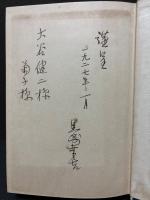 謹呈
一九二七年一月
黒田
大谷健二様
菊子様